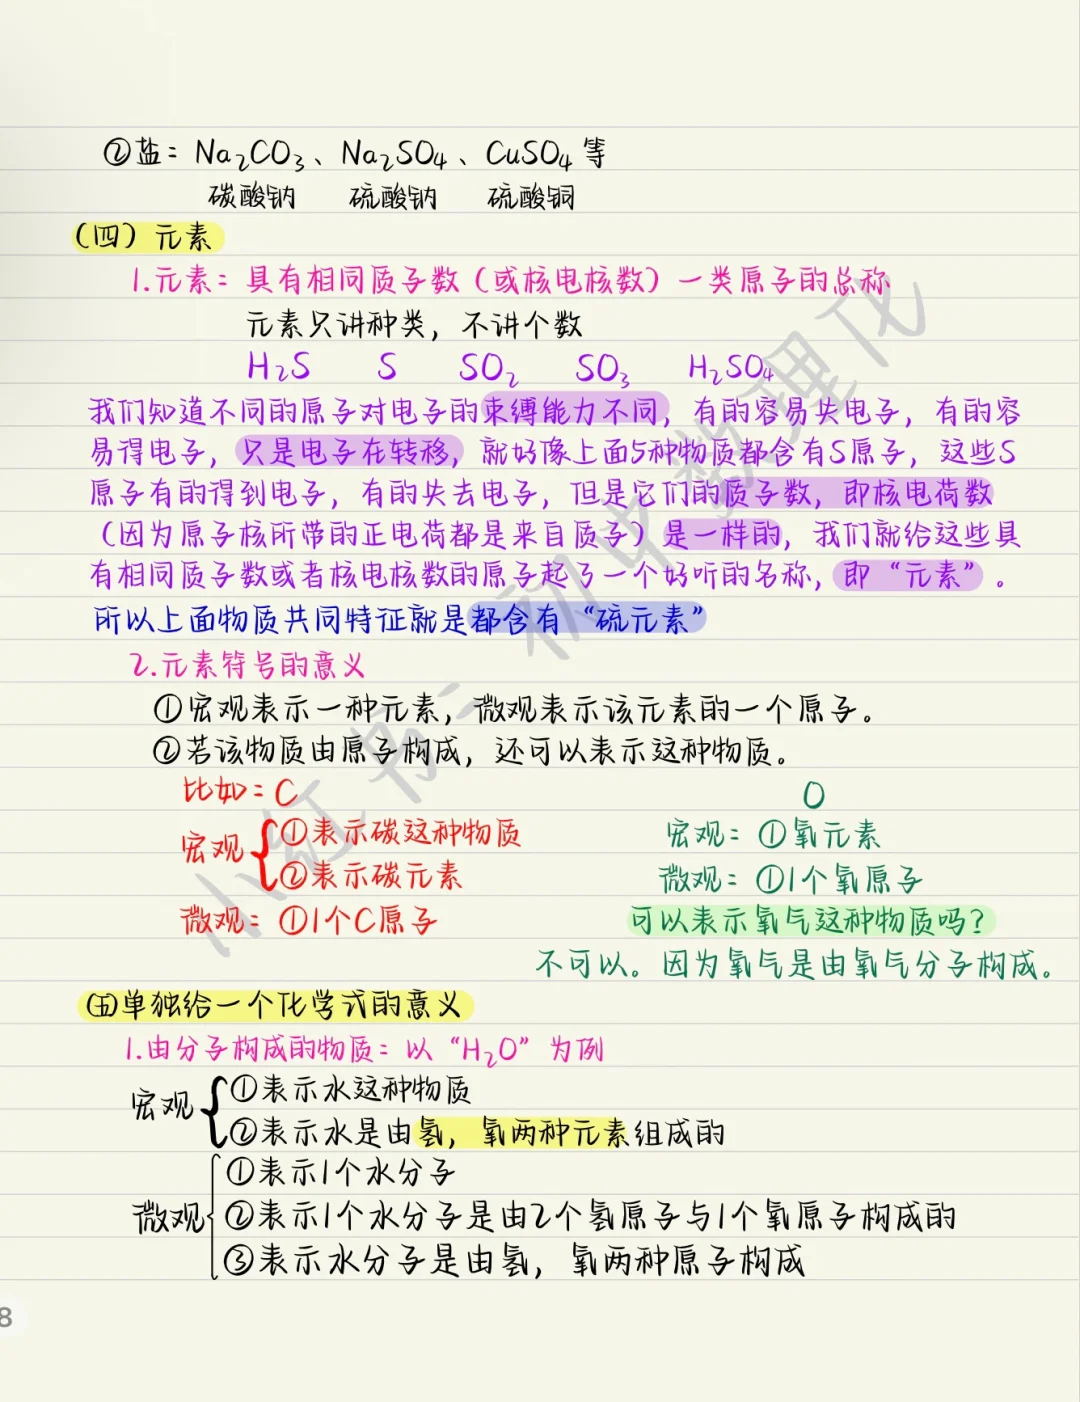 ②盐：Na₂CO₃、Na₂SO₄、CuSO₄等
碳酸钠 硫酸钠 硫酸铜
（四）元素
1.元素：具有相同质子数（或核电核数）一类原子的总称
元素只讲种类，不讲个数
H₂S S SO₂ SO₃ H₂SO₄
我们知道不同的原子对电子的束缚能力不同，有的容易失电子，有的容
易得电子，只是电子在转移，就好像上面5种物质都含有S原子，这些S
原子有的得到电子，有的失去电子，但是它们的质子数，即核电荷数
（因为原子核所带的正电荷都是来自质子）是一样的，我们就给这些具
有相同质子数或者核电核数的原子起了一个好听的名称，即“元素”。
所以上面物质共同特征就是都含有“硫元素”
2.元素符号的意义
①宏观表示一种元素，微观表示该元素的一个原子。
②若该物质由原子构成，还可以表示这种物质。
比如：C O
宏观 ①表示碳这种物质 宏观：①氧元素
②表示碳元素 微观：①1个氧原子
微观：①1个C原子 可以表示氧气这种物质吗？
不可以。因为氧气是由氧气分子构成。
（五）单独给一个化学式的意义
1.由分子构成的物质：以“H₂O”为例
宏观 ①表示水这种物质
②表示水是由氢，氧两种元素组成的
①表示1个水分子
微观 ②表示1个水分子是由2个氢原子与1个氧原子构成的
③表示水分子是由氢，氧两种原子构成
8
小红书：初中数理化